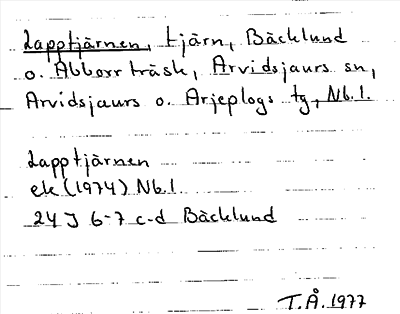 Lapptjärnen, tjärn, Bäcklund
o. Abborrträsk, Arvidsjaurs sn,
Arvidsjaurs o. Arjeplogs tg, Nb.l.
Lapptjärnen
ek (1974) Nb.l
24J 6-7 c-d Bäcklund
T.Å. 1977